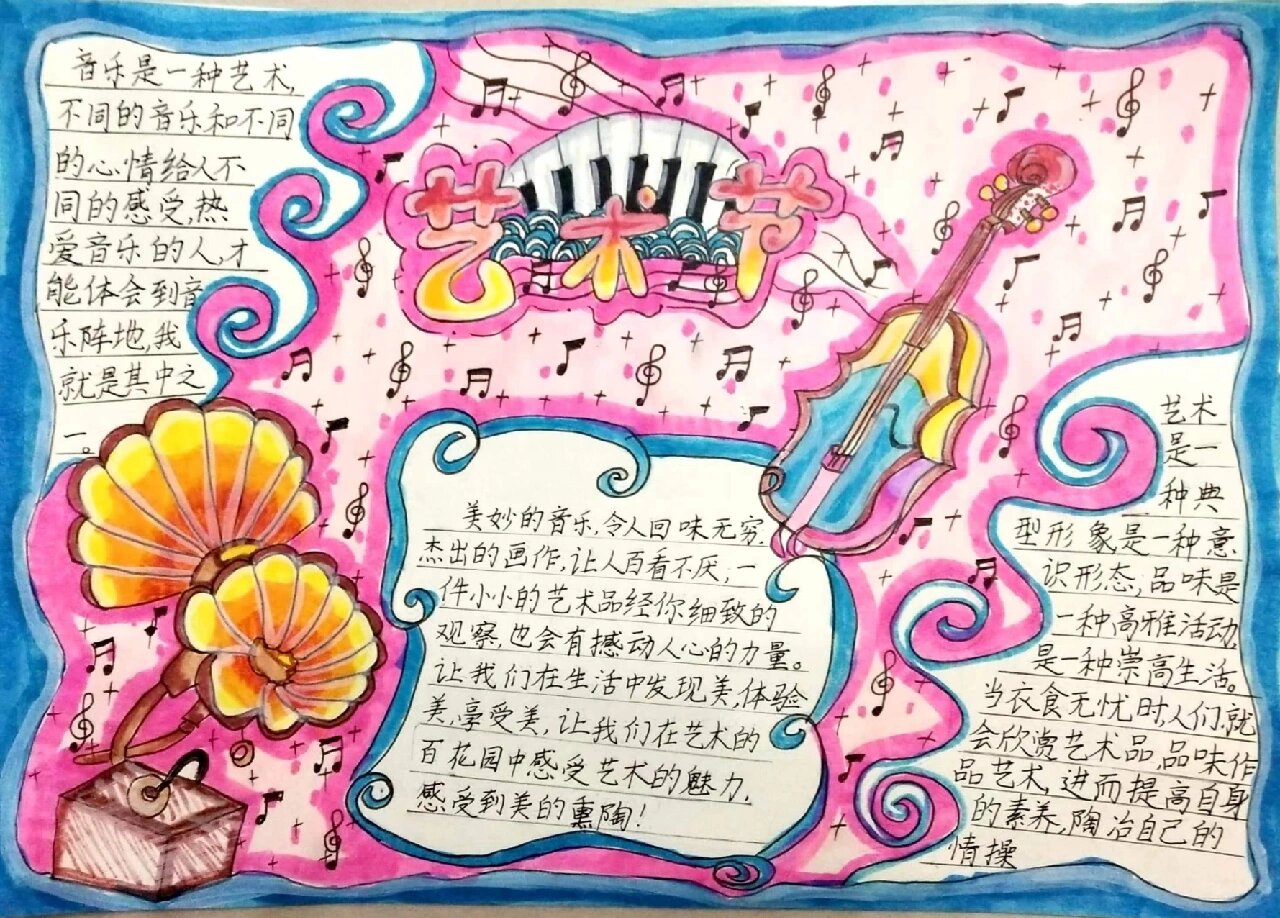 艺术节
音乐是一种艺术,
不同的音乐和不同
的心情给人不
同的感受,热
爱音乐的人,才
能体会到音
乐阵地,我
就是其中之
一。
美妙的音乐,令人回味无穷.
杰出的画作,让人百看不厌;一
件小小的艺术品经你细致的
观察,也会有撼动人心的力量。
让我们在生活中发现美,体验
美,享受美,让我们在艺术的
百花园中感受艺术的魅力.
感受到美的熏陶!
艺术
是一
种典
型形象是一种意
识形态,品味是
一种高雅活动,
是一种崇高生活。
当衣食无忧时人们,就
会欣赏艺术品,品味作
品艺术,进而提高自身
的素养,陶冶自己的
情操